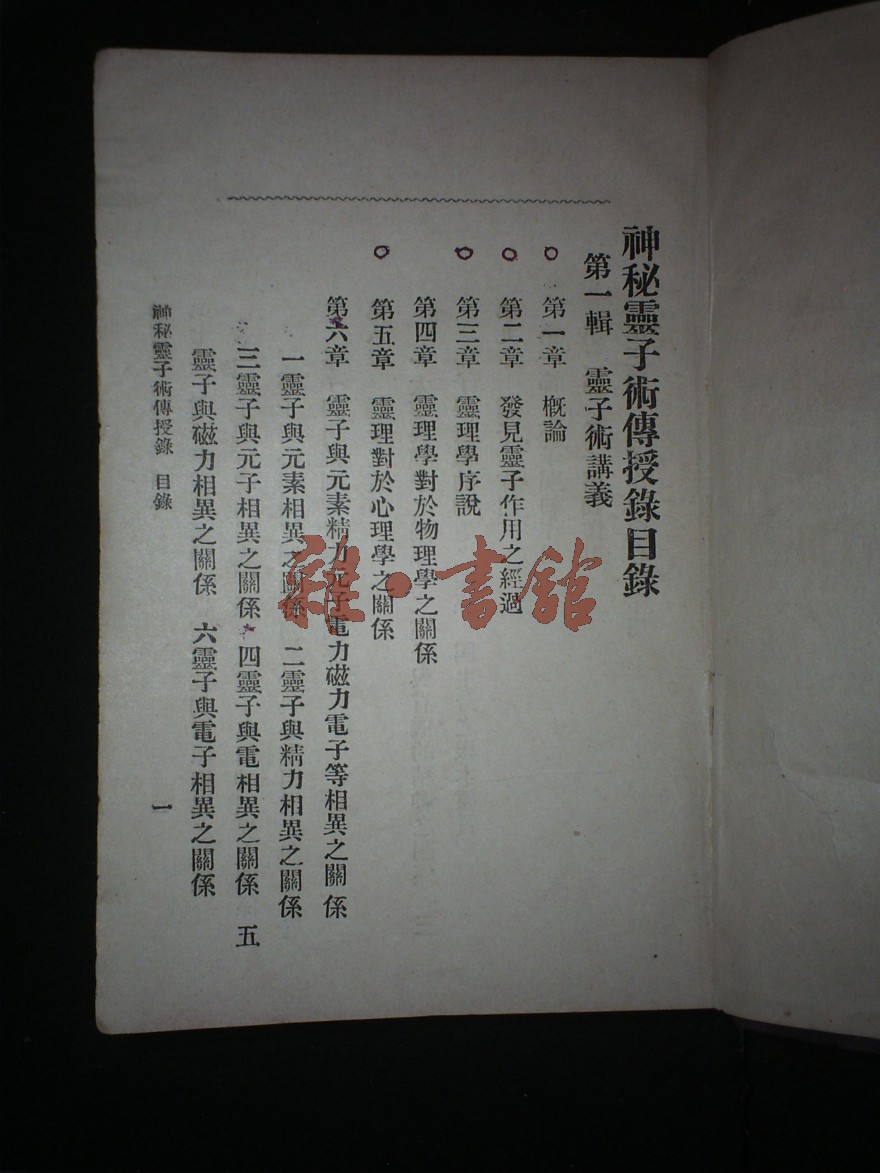 神秘靈子術傳授錄目錄
第一輯　靈子術講義
第一章　概論
第二章　發見靈子作用之經過
第三章　靈理學序說
第四章　靈理學對於物理學之關係
第五章　靈理對於心理學之關係
第六章　靈子與元素精力元子電力磁力電子等相異之關係
一靈子與元素相異之關係　二靈子與精力相異之關係
三靈子與元子相異之關係　四靈子與電相異之關係　五
靈子與磁力相異之關係　六靈子與電子相異之關係
神秘靈子術傳授錄　目錄　一
雜·書館